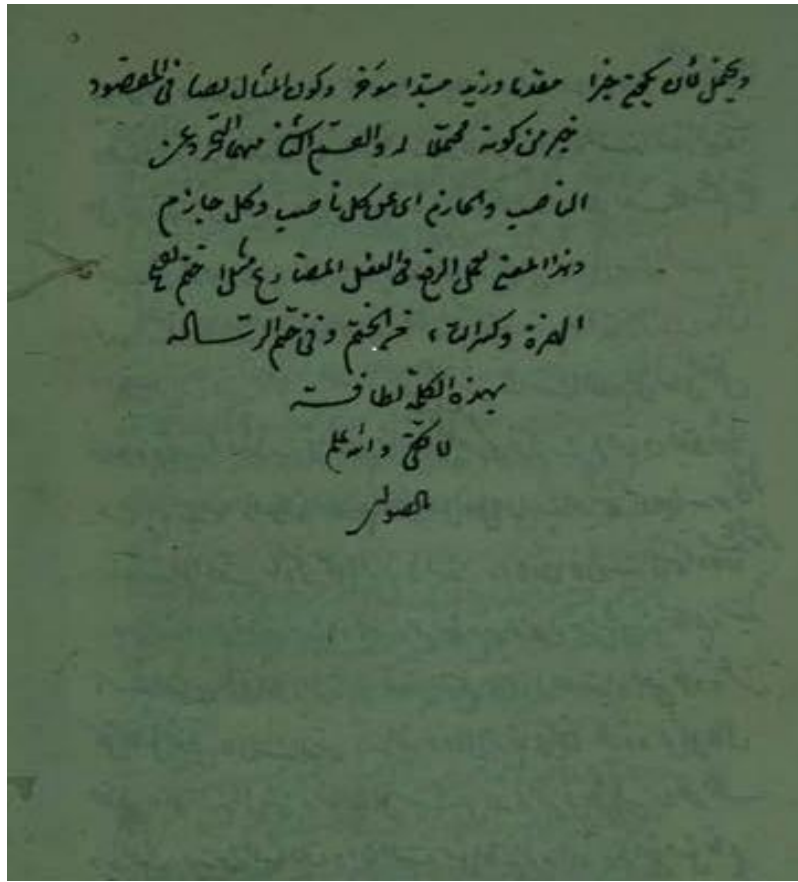 ويحتمل لأن يكون خبرا مقدما وزيد مبتدأ مؤخر وكون المثال نصا في المقصود
خير من كونه محتملا له والقسم الثاني منهما التجرد عن
الناصب والجازم اى عن كل ناصب وكل جازم
وهذا المعنى يحمل الرفع فى الفعل المضارع مثل اختم بفتح
الهمزة وكسر التاء من الختم وفى ختم الرسالة
بهذه الكلمة لطافة
لا تخفى والله اعلم
بالصواب